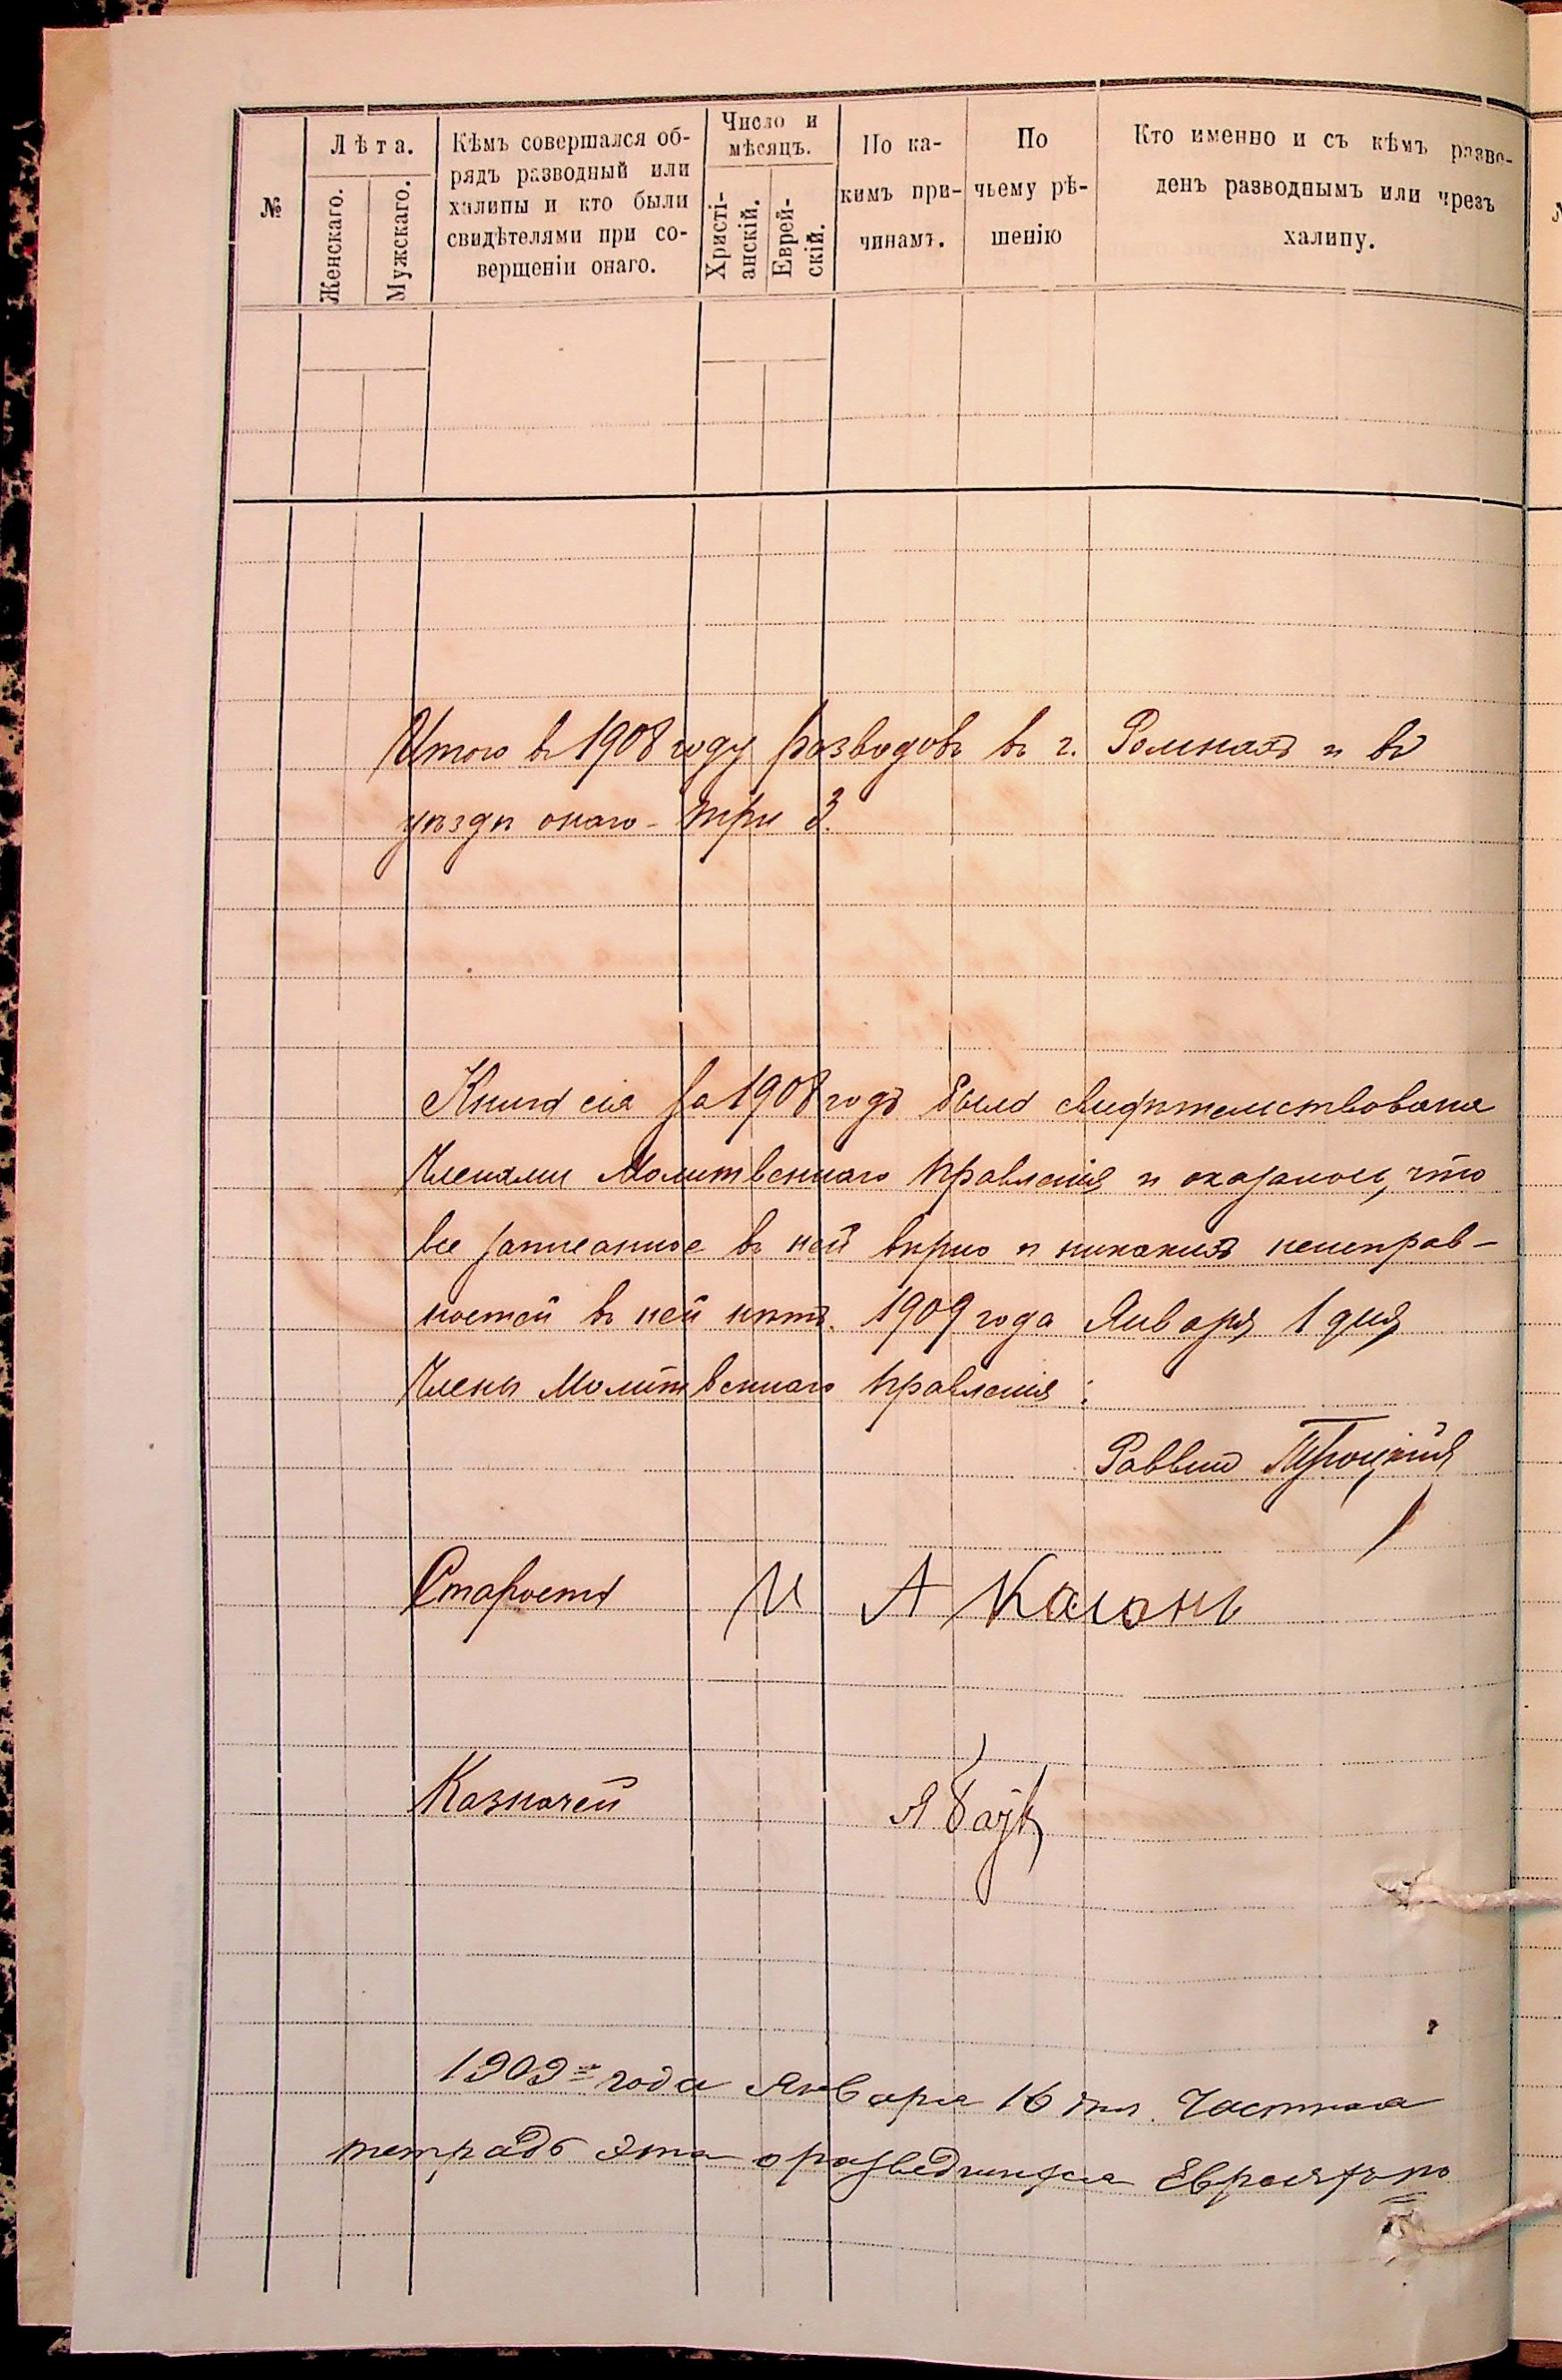 №
Лѣта.
Женскаго.
Мужскаго.
Кѣмъ совершался об-
рядъ разводный или
халицы и кто были
свидѣтелями при со-
вершеніи онаго.
Число и
мѣсяцъ.
Христі-
анскій.
Еврей-
скій.
По ка-
кимъ при-
чинамъ.
По
чьему рѣ-
шенію
Кто именно и съ кѣмъ разве-
денъ разводнымъ или чрезъ
халицу.
Итого въ 1908 году разводовъ въ г. Ромнахъ и въ
уѣздѣ онаго - три 3.
Книга сія за 1908 годъ была свидѣтельствована
Членами Молитвеннаго Правленія и оказалось, что
все записанное въ ней вѣрно и никакихъ неисправ-
ностей въ ней нѣтъ. 1909 года Января 1 дня
Члены Молитвеннаго Правленія:
Раввинъ Троцкій
Староста И А Каганъ
Казначей Я
1909 = года Января 16 дня. Частная
тетрадь эта о разведшихся Евреяхъ по